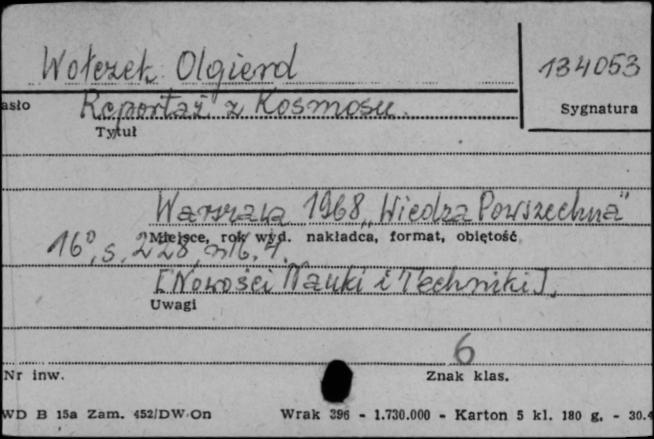 Wołczek Olgierd 134053
asło Reportaż z Kosmosu. Sygnatura
Tytuł
Warszawa 1968 „Wiedza Powszechna"
Miejsce, rok wyd. nakładca, format, obiętość
16°, s. 228,
[Nowości Nauki i Techniki].
Uwagi
6
Nr inw. Znak klas.
WD B 15a Zam. 452/DW-On Wrak 396 - 1.730.000 - Karton 5 kl. 180 g. - 30.4